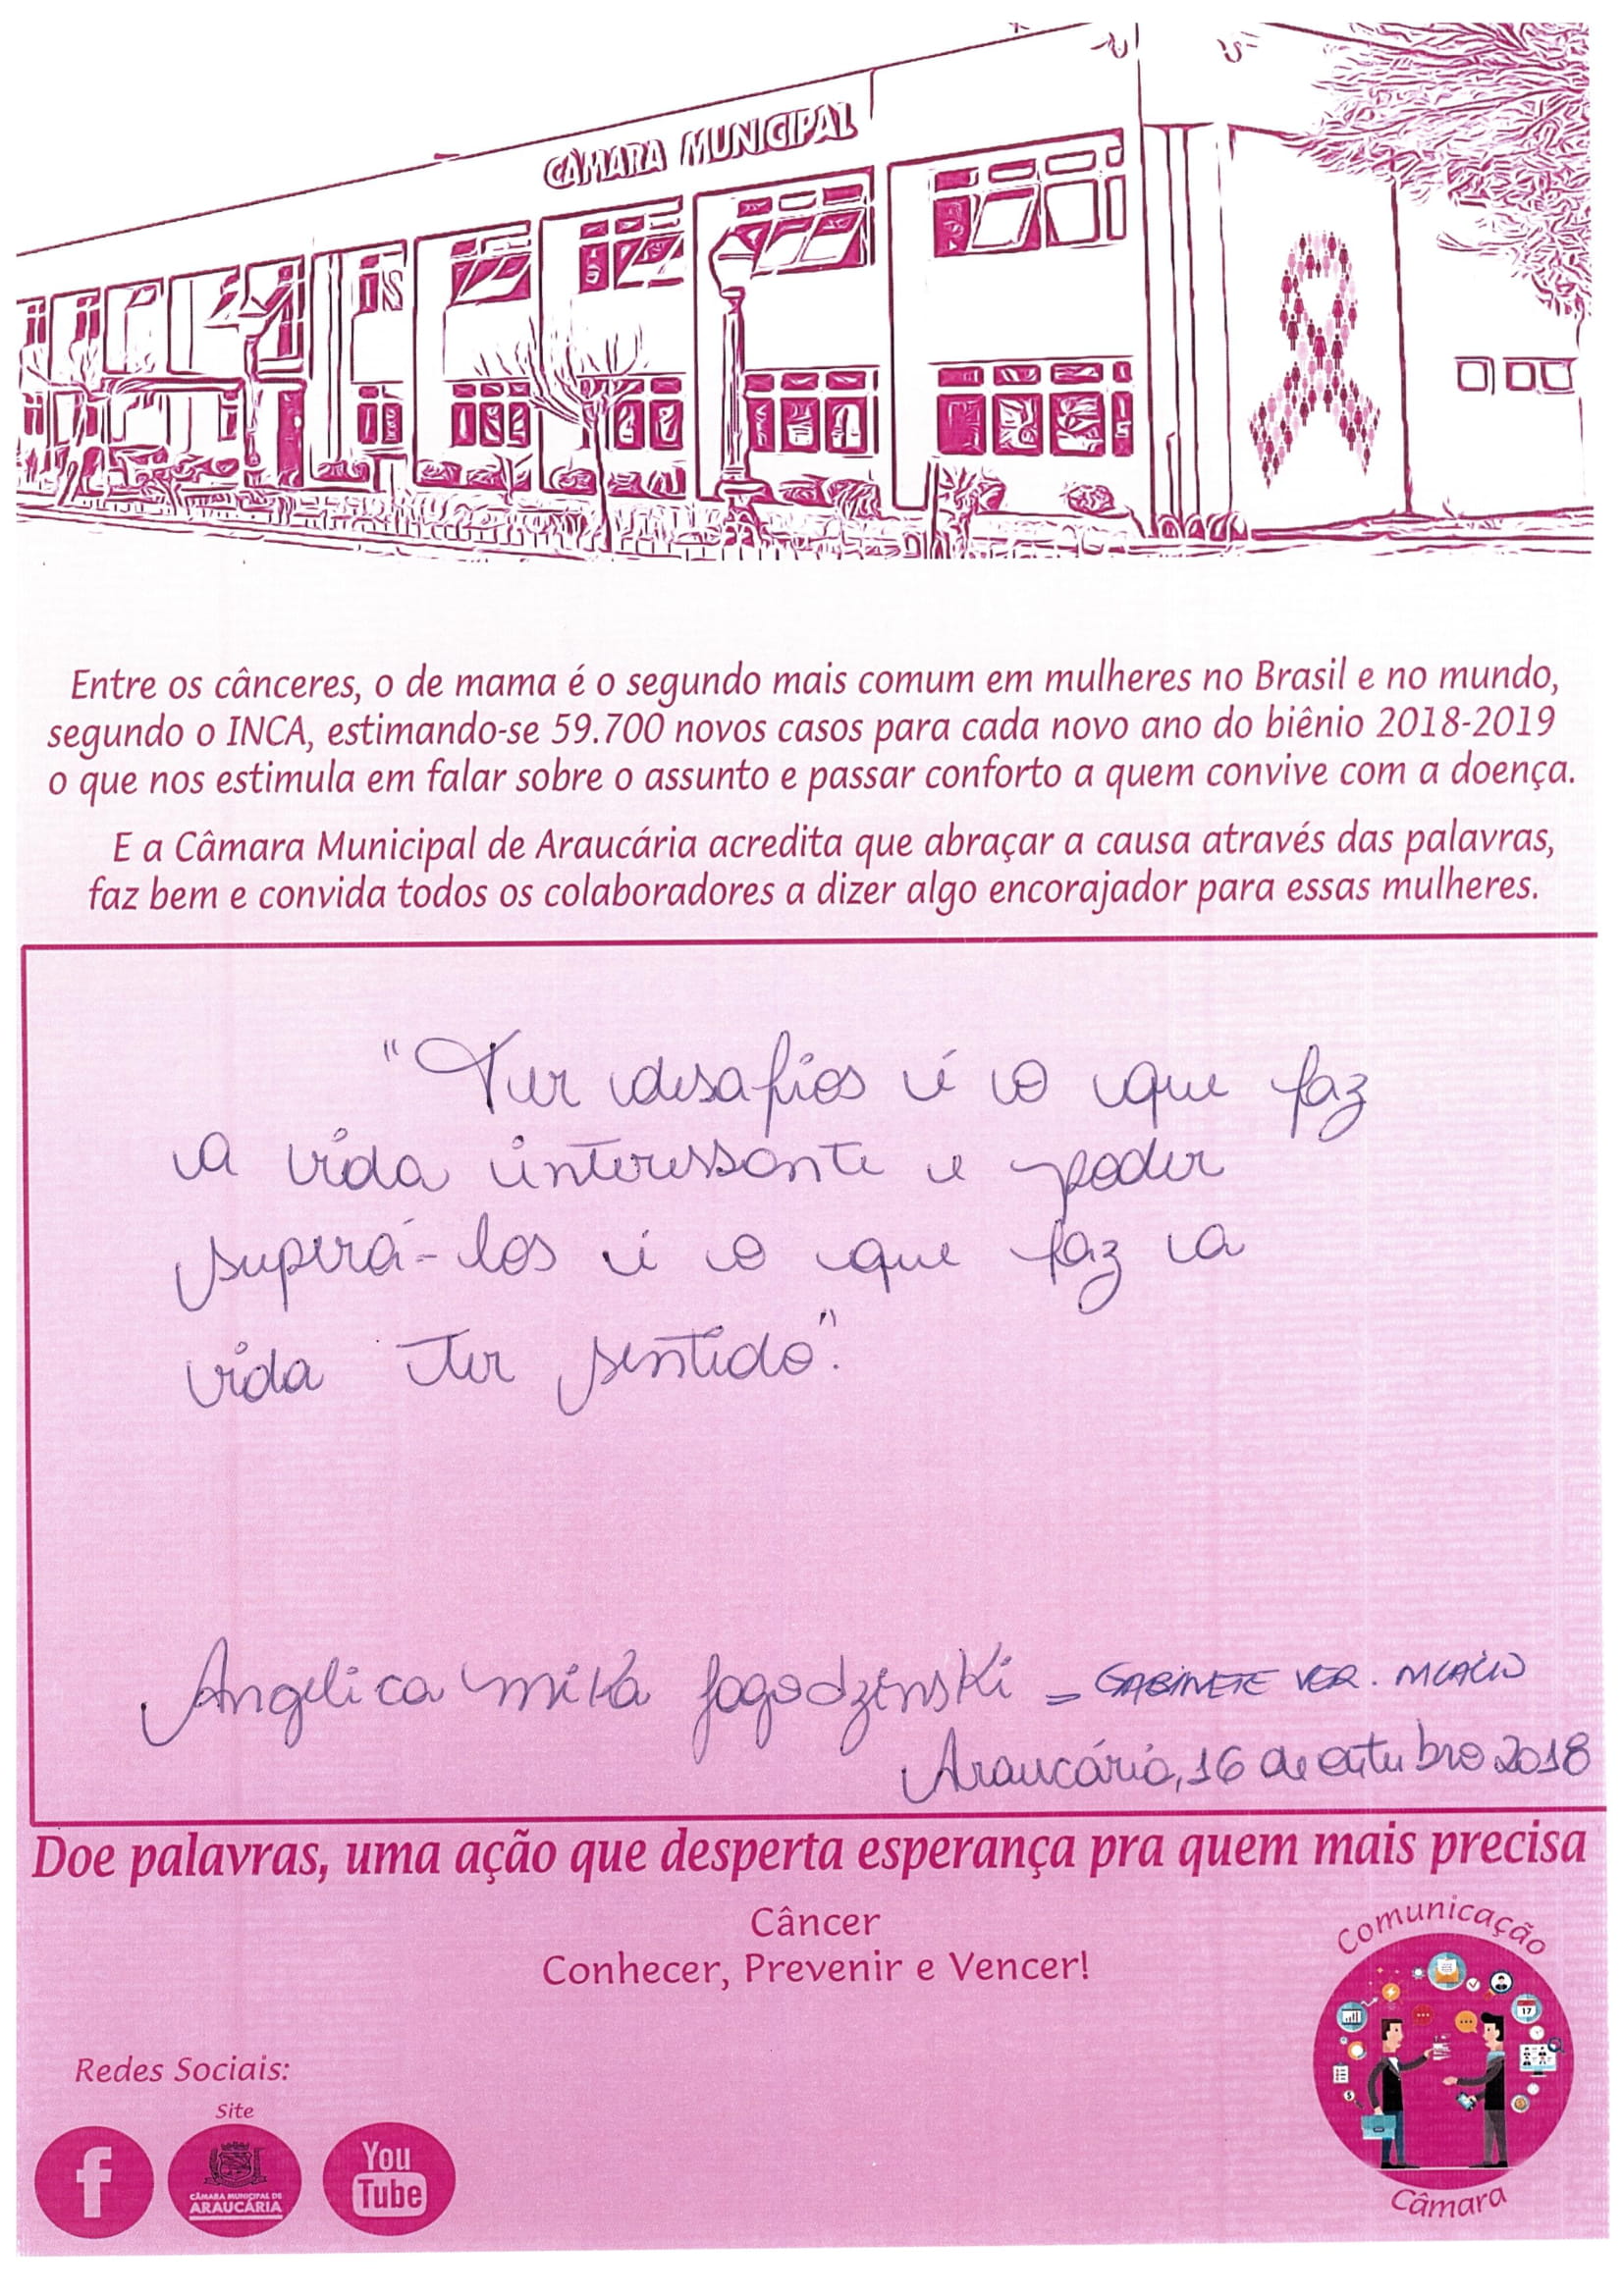 CÂMARA MUNICIPAL
Entre os cânceres, o de mama é o segundo mais comum em mulheres no Brasil e no mundo,
segundo o INCA, estimando-se 59.700 novos casos para cada novo ano do biênio 2018-2019
o que nos estimula em falar sobre o assunto e passar conforto a quem convive com a doença.
E a Câmara Municipal de Araucária acredita que abraçar a causa através das palavras,
faz bem e convida todos os colaboradores a dizer algo encorajador para essas mulheres.
"Ter desafios é o que faz
a vida interessante e poder
superá-los é o que faz a
vida ter sentido".
Angelica Mika Jagodzinski - GABINETE VER.
Araucária, 16 de outubro 2018
Doe palavras, uma ação que desperta esperança pra quem mais precisa
Câncer
Conhecer, Prevenir e Vencer!
Comunicação
17
Câmara
Redes Sociais:
Site
f
CÂMARA MUNICIPAL DE
ARAUCÁRIA
You
Tube